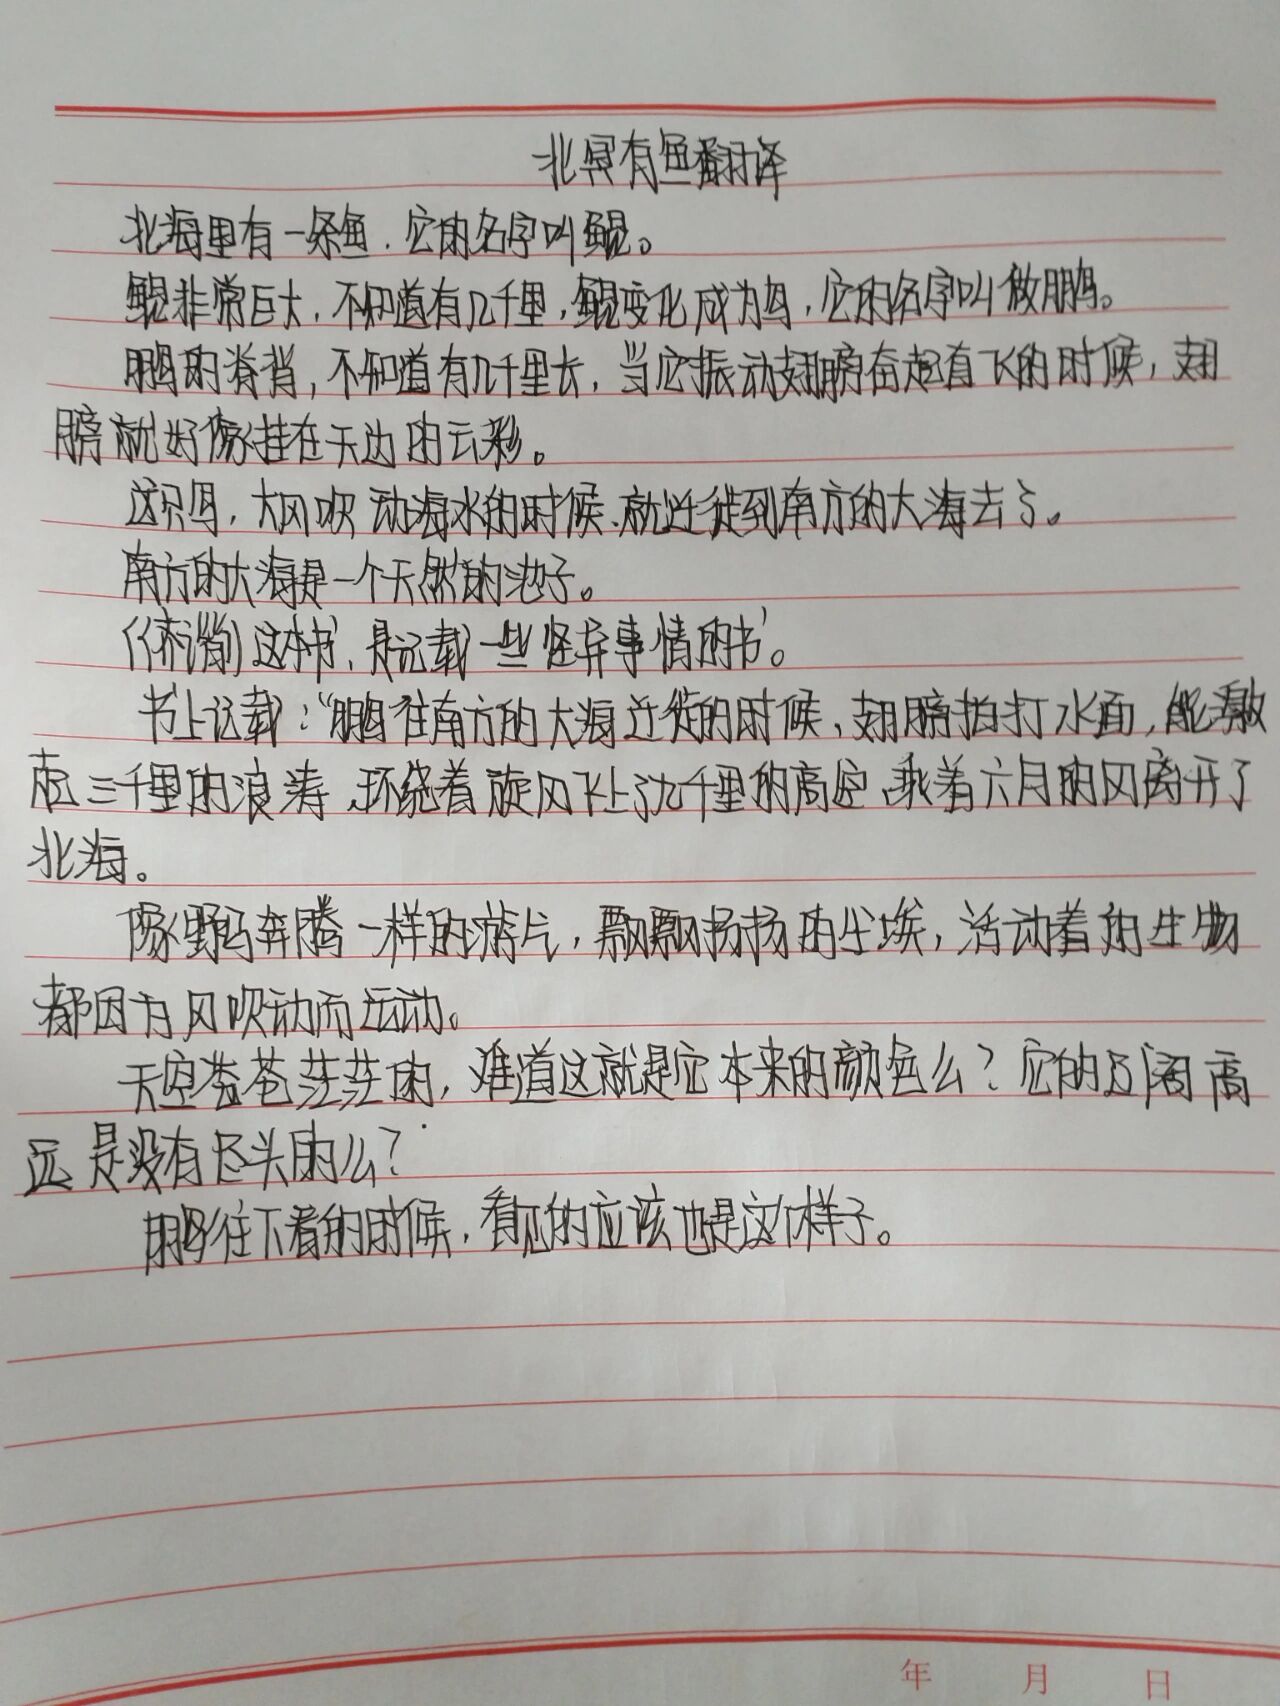 北冥有鱼翻译
北海里有一条鱼，它的名字叫鲲。
鲲非常巨大，不知道有几千里，鲲变化成为鸟，它的名字叫做鹏。
鹏的脊背，不知道有几千里长，当它振动翅膀奋起直飞的时候，翅
膀就好像挂在天边的云彩。
这只鸟，大风吹动海水的时候，就迁徙到南方的大海去了。
南方的大海是一个天然的池子。
《齐谐》这本书，是记载一些怪异事情的书。
书上记载：“鹏往南方的大海迁徙的时候，翅膀拍打水面，能激
起三千里的浪涛，环绕着旋风飞上了九千里的高空，乘着六月的风离开了
北海。
像野马奔腾一样的游气，飘飘扬扬的尘埃，活动着的生物
都因为风吹动而运动。
天空苍苍茫茫的，难道这就是它本来的颜色么？它的辽阔高
远是没有尽头的么？
鹏往下看的时候，看见的应该也是这个样子。
年 月 日